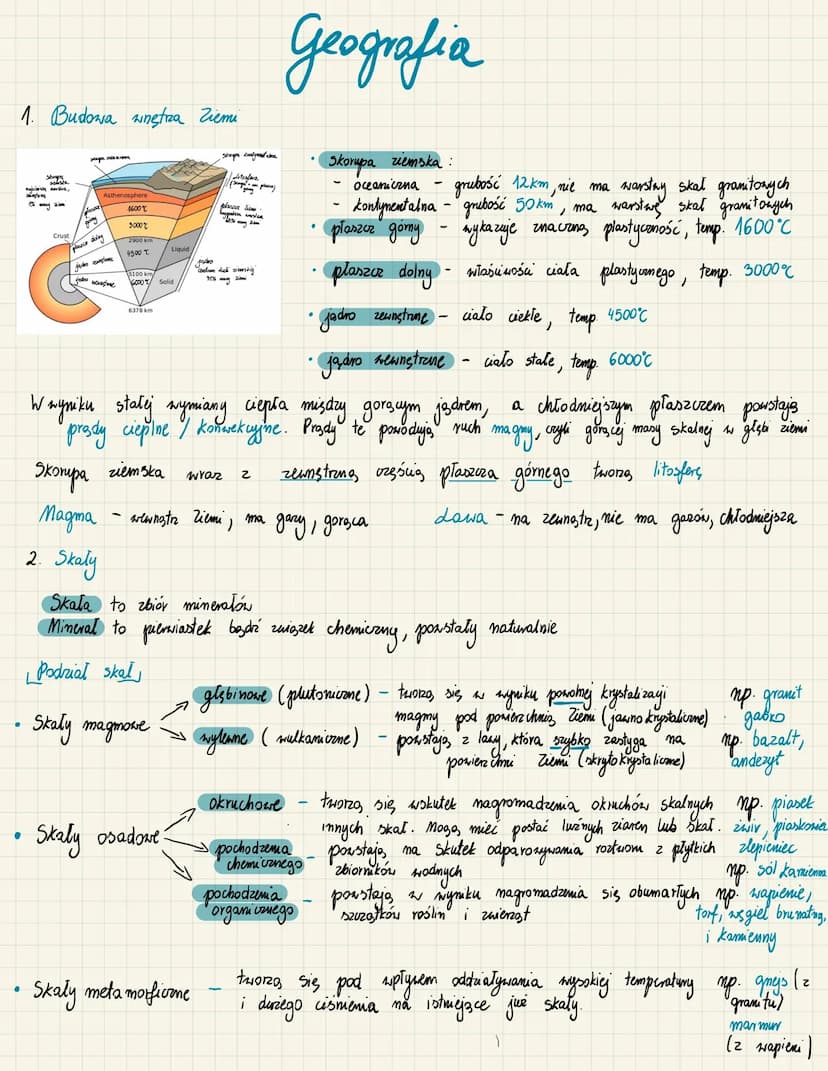 Geografia
1. Budowa wnętrza Ziemi
Asthenosphere
1600°C
3000°C
2900 km
Crust
4500°C
Liquid
5100 km
6000°C
Solid
6378 km
płaszcz górny
płaszcz dolny
jądro zewnętrzne
jądro wewnętrzne
• Skorupa ziemska :
- oceaniczna - grubość 12km, nie ma warstwy skał granitowych
- kontynentalna - grubość 50km, ma warstwę skał granitowych
• płaszcz górny - wykazuje znaczną plastyczność, temp. 1600°C
• płaszcz dolny - właściwości ciała plastycznego, temp. 3000°C
• jądro zewnętrzne - ciało ciekłe, temp. 4500°C
• jądro wewnętrzne - ciało stałe, temp. 6000°C
W wyniku stałej wymiany ciepła między gorącym jądrem, a chłodniejszym płaszczem powstają
prądy cieplne / konwekcyjne. Prądy te powodują ruch magmy, czyli gorącej masy skalnej w głębi ziemi
Skorupa ziemska wraz z zewnętrzną częścią płaszcza górnego tworzą litosferę
Magma - wewnątrz Ziemi, ma gazy, gorąca Lawa - na zewnątrz, nie ma gazów, chłodniejsza
2. Skały
Skała to zbiór minerałów
Minerał to pierwiastek bądź związek chemiczny, powstały naturalnie
Podział skał
• Skały magmowe
głębinowe (plutoniczne) - tworzą się w wyniku powolnej krystalizacji np. granit
magmy pod powierzchnią Ziemi (jawnokrystaliczne) gabro
wylewne (wulkaniczne) - powstają z lawy, która szybko zastyga na np. bazalt,
powierzchni Ziemi (skrytokrystaliczne) andezyt
• Skały osadowe
okruchowe - tworzą się wskutek nagromadzenia okruchów skalnych np. piasek
innych skał. Mogą mieć postać luźnych ziaren lub skał. żwir, piaskowiec
pochodzenia - powstają na skutek odparowywania roztworu z płytkich zlepieniec
chemicznego zbiorników wodnych np. sól kamienna
pochodzenia - powstają w wyniku nagromadzenia się obumarłych np. wapienie,
organicznego szczątków roślin i zwierząt torf, węgiel brunatny,
i kamienny
• Skały metamorficzne - tworzą się pod wpływem oddziaływania wysokiej temperatury np. gnejs (z
i dużego ciśnienia na istniejące już skały. granitu)
marmur
(z wapieni)